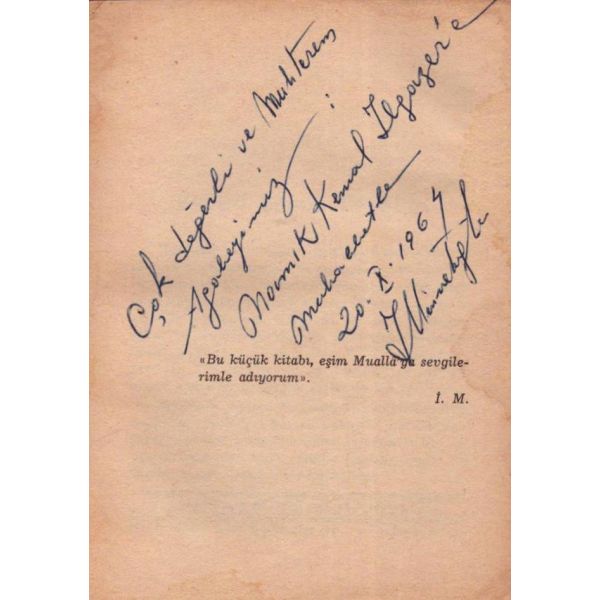 Çok değerli ve Muhterem
Agabeyimiz :
Namık Kemal Ilgazer'e
Muhabbetle
20. X. 1964
«Bu küçük kitabı, eşim Mualla'ya sevgile-
rimle adıyorum».
İ. M.